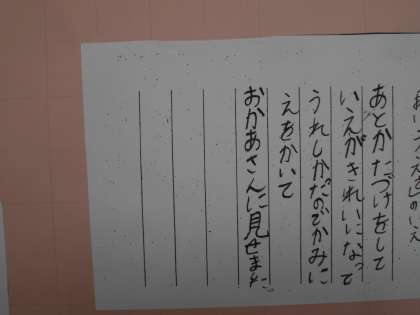 あとかたづけをして
いえがきれいになって
うれしかったのでかみに
えをかいて
おかあさんに見せました。